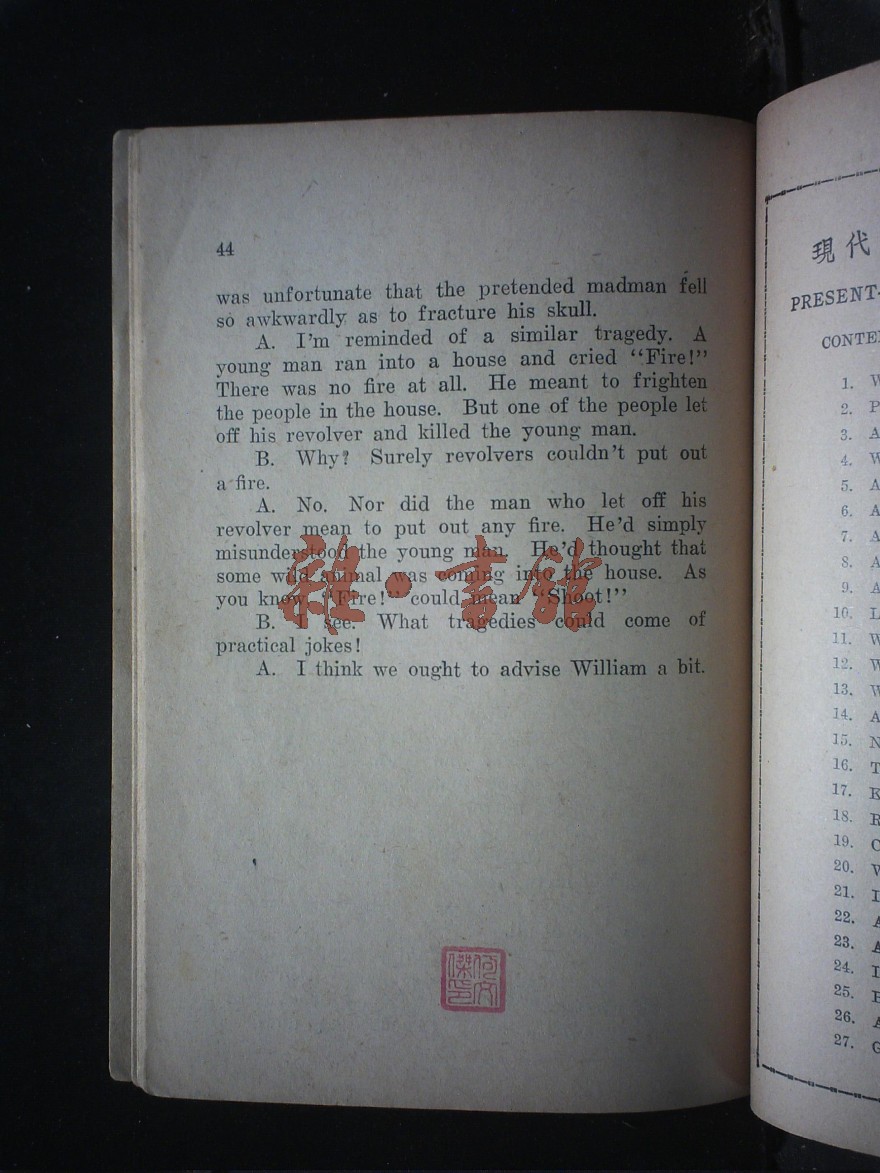 44
was unfortunate that the pretended madman fell
so awkwardly as to fracture his skull.
A. I'm reminded of a similar tragedy. A
young man ran into a house and cried "Fire!"
There was no fire at all. He meant to frighten
the people in the house. But one of the people let
off his revolver and killed the young man.
B. Why? Surely revolvers couldn't put out
a fire.
A. No. Nor did the man who let off his
revolver mean to put out any fire. He'd simply
misunderstood the young man. He'd thought that
some wild animal was coming into the house. As
you know, "Fire!" could mean "Shoot!"
B. I see. What tragedies could come of
practical jokes!
A. I think we ought to advise William a bit.
雜·書館
現代
PRESENT-
CONTE
1. W
2. P
3. A
4. W
5. A
6. A
7. A
8. A
9. A
10. L
11. W
12. W
13. W
14. A
15. N
16. T
17. K
18. R
19. C
20. V
21. I
22. A
23. A
24. I
25. E
26. A
27. G